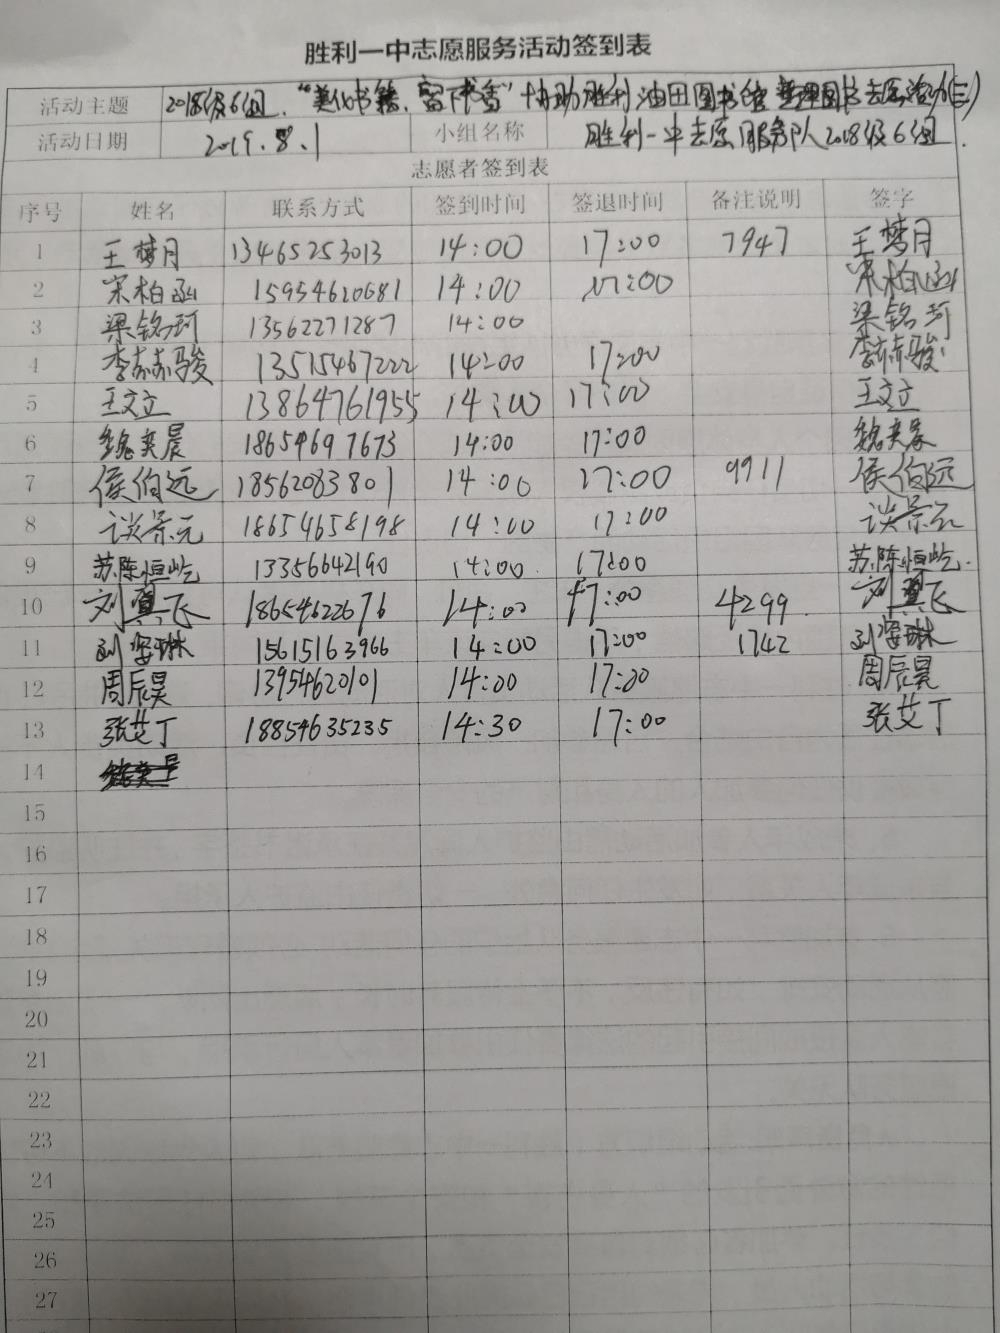 胜利一中志愿服务活动签到表
活动主题 2018级6组.“美化书籍,留下书香”协助胜利油田图书馆整理图书志愿活动(三)
活动日期 2019.8.1 小组名称 胜利一中志愿服务队2018级6组.
志愿者签到表
序号 姓名 联系方式 签到时间 签退时间 备注说明 签字
1 王梦月 13465253013 14:00 17:00 7947 王梦月
2 宋柏函 15954620681 14:00 17:00 宋柏函
3 梁铭珂 13562271287 14:00 梁铭珂
4 李赫赫骏 13515467222 14:00 17:00 李赫赫骏
5 王文立 13864761955 14:00 17:00 王文立
6 魏奕晨 18654697673 14:00 17:00 魏奕晨
7 侯伯远 18562083801 14:00 17:00 9911 侯伯远
8 谈景元 18654658198 14:00 17:00 谈景元
9 苏陈恒屹 13356642190 14:00. 17:00 苏陈恒屹.
10 刘翼飞 18654622676 14:00 17:00 4299 刘翼飞
11 刘姿琳 15615163966 14:00 17:00 1742 刘姿琳
12 周辰昊 13954620101 14:00 17:00 周辰昊
13 张艾丁 18854635235 14:30 17:00 张艾丁
14
15
16
17
18
19
20
21
22
23
24
25
26
27